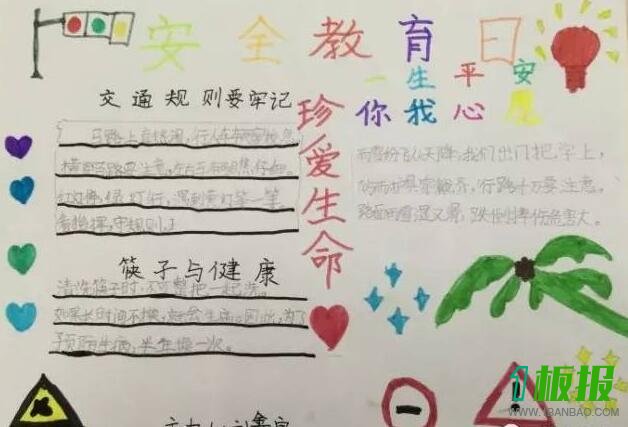 安全教育日
一生平安
你我心愿
珍爱生命
交通规则要牢记
马路上真热闹,行人车辆
横穿马路要注意,左右
红灯停,绿灯行,遇到黄灯等一等。
看指挥,守规则
雨雪纷飞从天降,我们出门把
行路十万要注意。
路面雨雪湿又滑,跌倒摔伤危害大。
筷子与健康
清洗筷子时,不可整把一起洗。
如果长时间不换,就会生病。因此,为了
预防生病,半年换一次。
板报
WWW.1BANBAO.COM